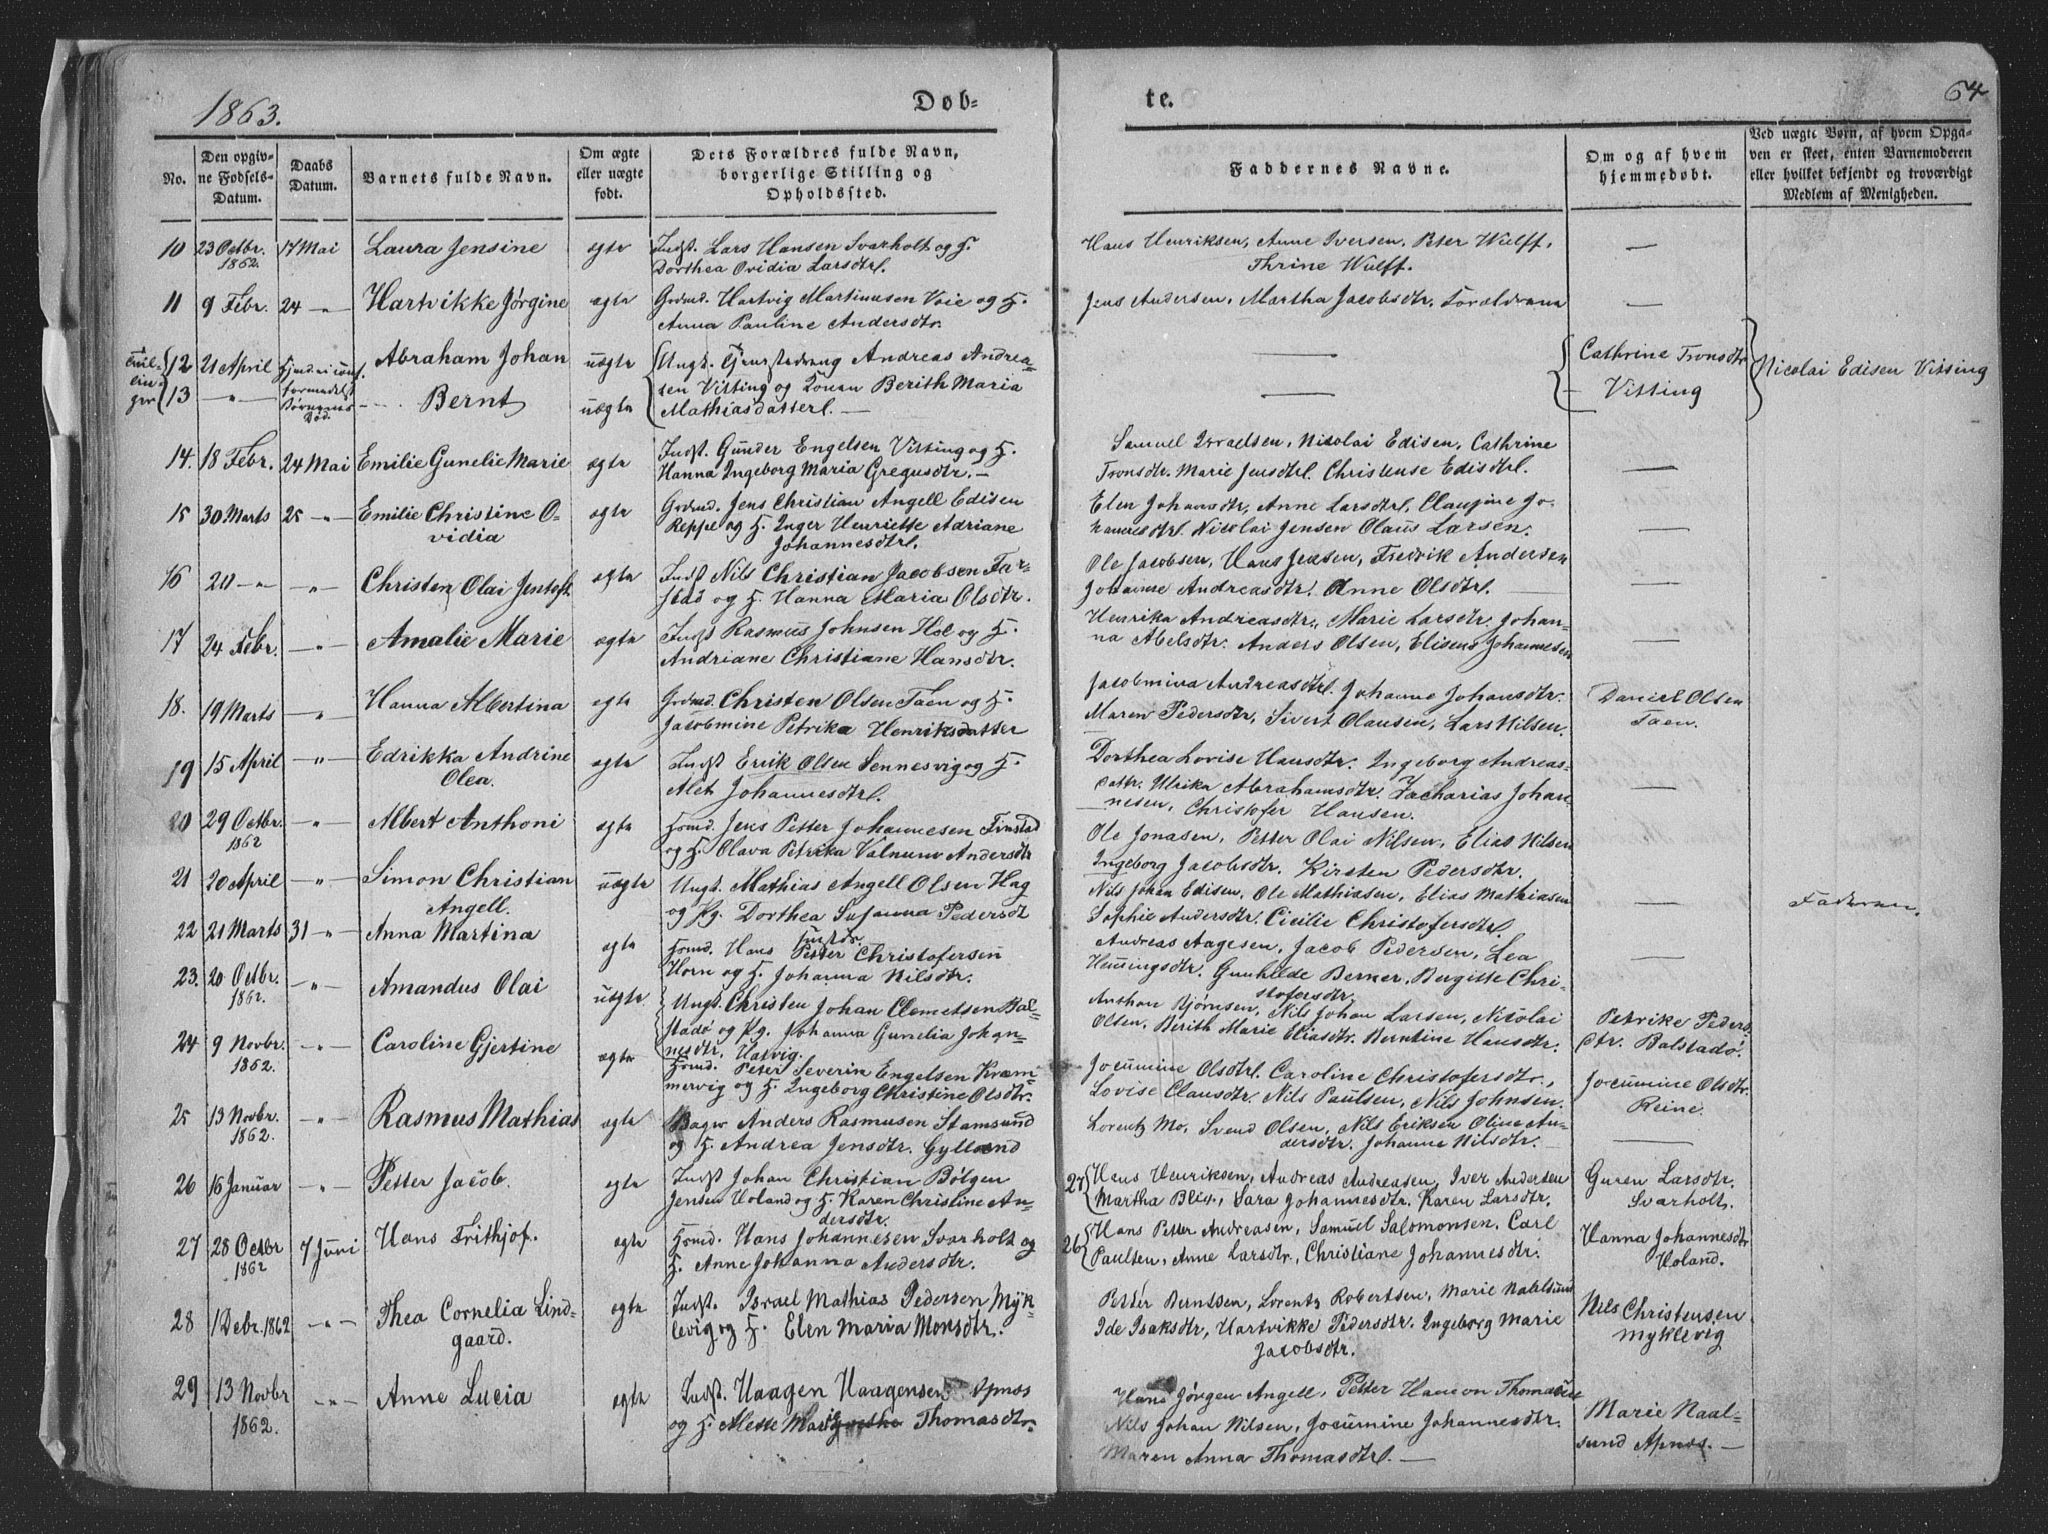 1863.
Døb-
te.
64
No.
Den opgiv-
ne Fødsels-
Datum.
Daabs
Datum.
Barnets fulde Navn.
Om ægte
eller uægte
født.
Dets Forældres fulde Navn,
borgerlige Stilling og
Opholdssted.
Faddernes Navne.
Om og af hvem
hjemmedøbt.
Ved uægte Børn, af hvem Opga-
ven er skeet, enten Barnemoderen
eller hvilket bekjendt og troværdigt
Medlem af Menigheden.
10 23 Octbr. 17 Mai Laura Jensine ægte Indst. Lars Hansen Svarholt og H. Hans Henriksen, Anne Iversen, Peter Wulff, —
1862. Dorthea Ovidia Larsdtr. Thrine Wulff.
11 9 Febr. 24 -"- Hartvikke Jørgine ægte Grdmd. Hartvig Martinusen Voie og H. Jens Andersen, Martha Jacobsdtr. Forældrene —
Anna Pauline Andersdtr.
Tvil-
lin-
ger
12 21 April Abraham Johan uægte Ungk. Andreas Andrea- — Cathrine Tronsdtr Nicolai Edisen Vitting
13 -"- Børnenes Død. Bernt uægte sen Vitting og Konen Berith Maria — Vitting
Mathiasdatterl. —
14. 18 Febr. 24 Mai Emilie Gunelie Marie ægte Indst. Gunder Engelsen Vitting og H. Samuel Israelsen, Nicolai Edisen, Cathrine —
Hanna Ingeborg Maria Gregusdtr. — Tronsdtr. Marie Jensdtrl. Christense Edisdtrl.
15 30 Marts 25 -"- Emilie Christine O- ægte Grdmd. Jens Christian Angell Edisen Elen Johansdtr, Anne Larsdtrl, Jo- —
vidia Reppe og H. Inger Henriette Adriane hannesdtrl. Nicolai Jensen Olaus Larsen.
Johannesdtrl.
16 20 -"- -"- Christen Olai Jentoft ægte Indst Nils Christian Jacobsen Far- Ole Jacobsen, Hans Jensen, Fredrik Andersen —
stad og H. Hanna Maria Olsdtr. Johanne Andreasdtr. Anne Olsdtrl.
17 24 Febr. -"- Amalie Marie ægte Indst Rasmus Johnsen Hol og H. Henrika Andreasdtr., Marie Larsdtr. Johan- —
Andriane Christiane Hansdtr. na Abelsdtr. Anders Olsen, Eliseus Johannesen
18. 19 Marts -"- Hanna Albertina ægte Grdmd. Christen Olsen Taen og H. Jacobmina Andreasdtrl. Johanne Johansdtr. Daniel Olsen
Jacobmine Petrika Henriksdatter Maren Pedersdtr, Sivert Olausen, Lars Nilsen. Taen.
19 15 April -"- Edrikka Andrine ægte Indst Erik Olsen Sennesvig og H. Dorthea Lovise Hansdtr. Ingeborg Andreas- —
Olea. Alet Johannesdtrl. dattr. Ulrika Abrahamsdtr. Zacharias Johan-
nesen, Christofer Hansen.
20 29 Octbr. -"- Albert Anthoni ægte Hmd. Jens Petter Johannesen Finstad Ole Jonasen, Petter Olai Nilsen, Elias Nilsen
1862 og H. Olava Petrika Valnum Andersdtr Ingeborg Jacobsdtr. Kirsten Pedersdtr.
21 20 April -"- Simon Christian uægte Ungk. Mathias Angell Olsen Hag Nils Johan Edisen, Ole Mathiasen, Elias Mathiasen — Faderen.
Angell. og Pg. Dorthea Susanna Pedersdt Sophie Andersdtr. Cicilie Christofersdtr.
22 21 Marts 31 -"- Anna Martina ægte Hmd. Hans Petter Christofersen Andreas Aagesen, Jacob Pedersen, Lea —
Horn og H. Johanna Nilsdtr. Hemingsdtr. Gunhilde Berner, Bergitte Chri-
stofersdtr.
23. 20 Octbr. -"- Amandus Olai uægte Ungk. Christen Johan Clemetsen Bal- Anthon Bjørnsen, Nils Johan Larsen, Nicolai Petrike Peders
1862. stad og Pg. Johanna Gunelia Johan- Olsen, Berith Marie Eliasdtr. Berntine Hansdtr. dtr. Balstad.
nesdtr.
24 9 Novbr. -"- Caroline Gjertine ægte Hmd. Peter Severin Engelsen Kræm- Jocumine Olsdtrl. Caroline Christofersdtr., Jocumine Olsdtr.
1862 mervig og H. Ingeborg Christine Olsdtr. Lovise Clausdtr. Nils Paulsen, Nils Johnsen. Reine.
25 13 Novbr. -"- Rasmus Mathias ægte Bager Anders Rasmusen Stamsund Lorentz Mo, Svend Olsen, Nils Eriksen Oline An- —
1862. og H. Andrea Jensdtr. Gyllænd dersdtr. Johanne Nilsdtr.
26 16 Januar -"- Petter Jacob. ægte Indst Johan Christian Bølgen 27 Hans Henriksen, Andreas Andreasen, Iver Andersen Guren Larsdtr.
Jensen Holand og H. Karen Christine An- Martha Blix, Sara Johannesdtr. Karen Larsdtr. Svarholt,
dersdtr.
27 28 Octbr 7 Juni Hans Frithjof. ægte Hmd. Hans Johannesen Svarholt og 26 Hans Petter Andreasen, Samuel Salomonsen, Carl Hanna Johannesdtr
1862 H. Anne Johanna Andersdtr. Paulsen, Anne Larsdtr., Christiane Johannesdtr. Holand.
28 1 Debr. 1862 -"- Thea Cornelia Lind- ægte Indst. Israel Mathias Pedersen Myk- Petter Berntsen, Lorentz Robertsen, Marie Nalelsund Nils Christensen
gaard. levig og H. Elen Maria Monsdtr. Ide Isaksdtr, Hartvikke Pedersdtr. Ingeborg Marie Myklevig
Jacobsdtr.
29 13 Novbr -"- Anne Lucia ægte Indst. Haagen Haagensen Apnes Hans Jørgen Angell, Petter Hanson Thomasen Marie Naal-
1862. og H. Alette Thomasdtr. Nils Johan Nilsen, Jocumine Johannesdtr. sund Apnes. —
Maren Anna Thomasdtrl. —